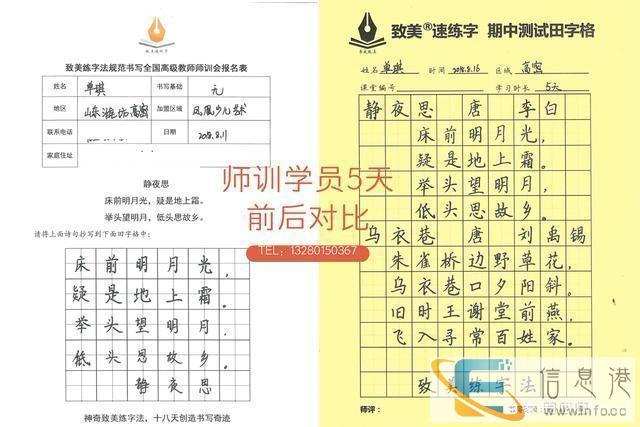 致美练字法规范书写全国高级教师师训会报名表
姓名 单琪 书写基础 无
地区 山东潍坊高密 加盟区域 凤凰少儿艺术
联系电话 日期 2018.8.11
家庭住址
静夜思
床前明月光，疑是地上霜。
举头望明月，低头思故乡。
请将上面诗句抄写到下面田字格中：
床前明月光，
疑是地上霜。
举头望明月，
低头思故乡。
静夜思
神奇致美练字法，十八天创造书写奇迹
师训学员5天
前后对比
TEL：13280150367
致美®速练字 期中测试田字格
姓名 单琪 时间 2018.8.16 区域 高密
课堂编号 学习时长 5天
静夜思 唐 李白
床前明月光，
疑是地上霜。
举头望明月，
低头思故乡。
乌衣巷 唐 刘禹锡
朱雀桥边野草花，
乌衣巷口夕阳斜。
旧时王谢堂前燕，
飞入寻常百姓家。
致美练字法
师评：
信息港
www.cninfo.cc